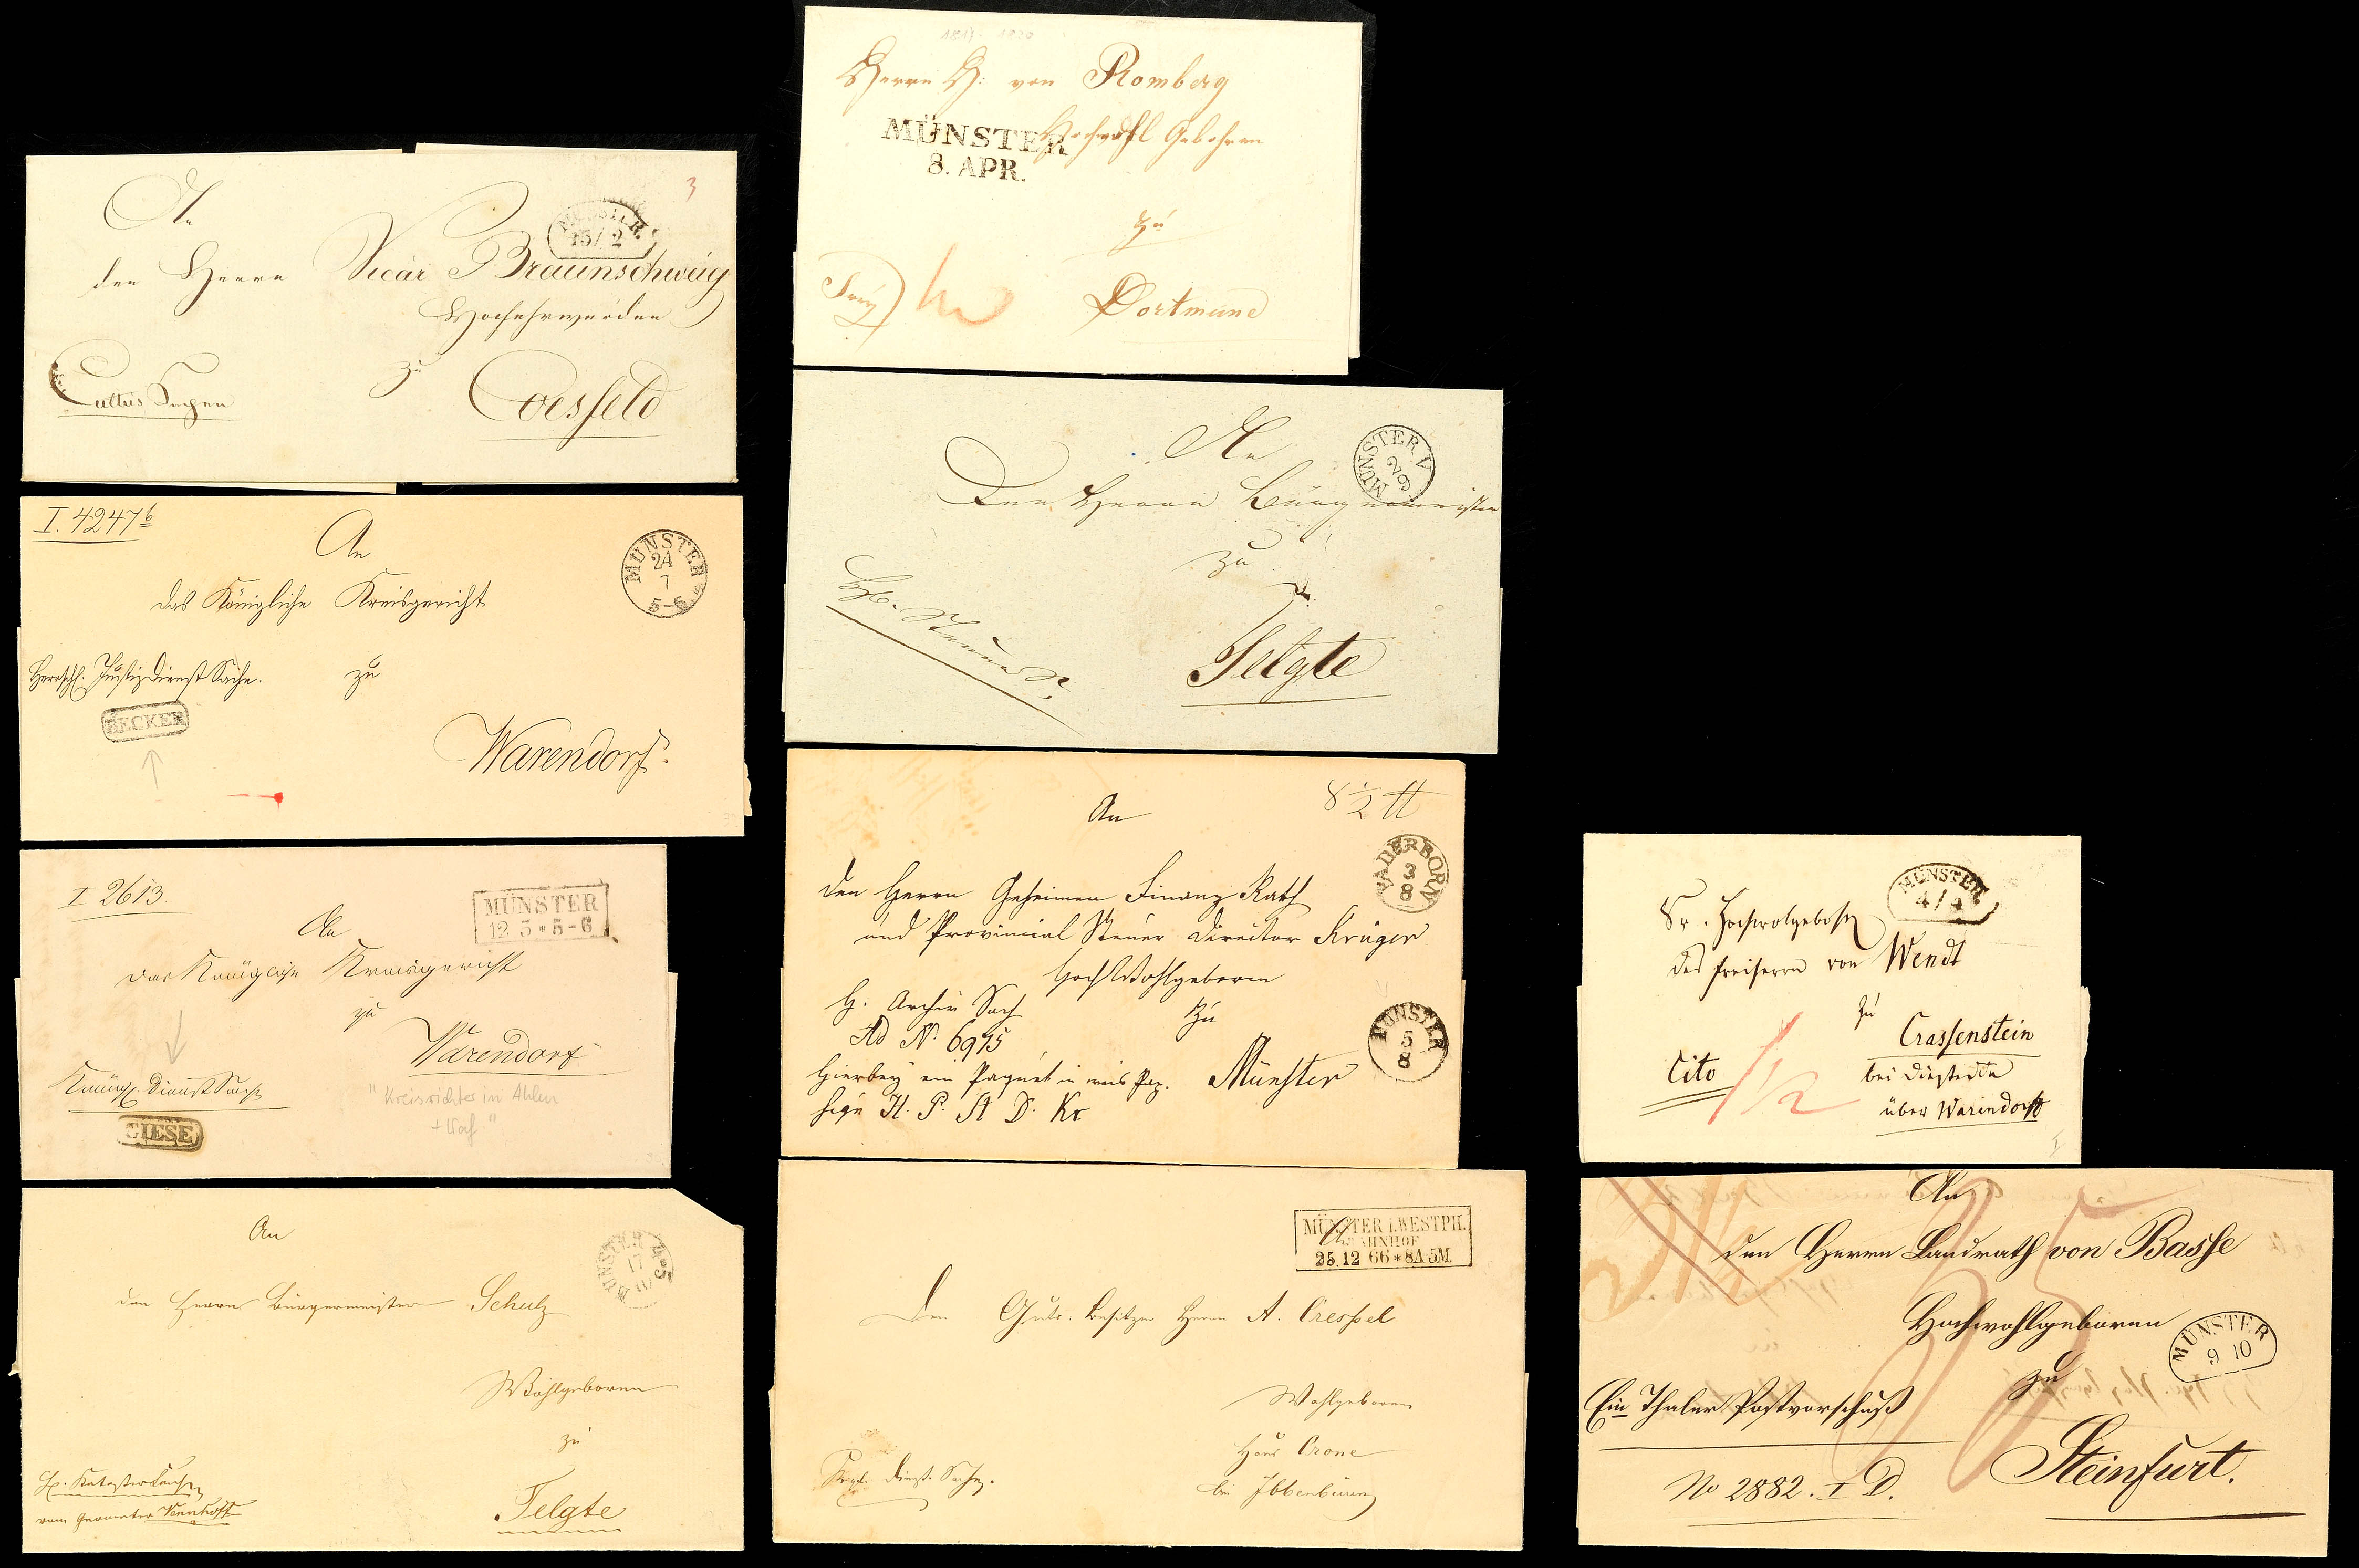 An
3
MÜNSTER
15/2
den Herrn Vicar Braunschweig
Hochehrwürden
zu
Cultus Sachen
Coesfeld
I. 4247 b
An
MÜNSTER
24
7
5-6
das Königliche Kreisgericht
Herrschl. Justizdienst Sache.
zu
BECKER
Warendorf.
I 2613.
MÜNSTER
12 5 * 5-6
An
das Königliche Kreisgericht
zu
Warendorf
Königl. Dienst Sache
"Kreisrichter in Ahlen
GIESE
An
MÜNSTER
17
10
4-5
den Herrn Bürgermeister Schulz
Wohlgeboren
zu
Kataster Sachen
vom Geometer Vennhoff
Telgte
1817-1820
Herrn H: von Romberg
MÜNSTER
8. APR.
Hochwohl Gebohren
zu
Dortmund
An
MÜNSTER V
29
Den Herrn Bürgermeister
zu
Telgte
8 1/2
An
PADERBORN
3
8
den Herrn Geheimen Finanz Rath
und Provincial Steuer Director Krüger
HochWohlgeboren
H. Archiv Sach
zu
MÜNSTER
5
8
Ad No 6975
Hierbey ein Paquet in Pap.
Münster
sign H. P. St D. Kr
MÜNSTER I. WESTPH.
BAHNHOF
25.12 66 * 8A-5M.
Den Guts-besitzer Herrn A. Crespel
Wohlgeboren
Haus Crone
Dienst-Sache.
bei Ibbenbüren
MÜNSTER
4/4
Sr. Hochwolgeboren
des Freiherrn von Wendt
zu
Crassenstein
Cito
bei Diestedde
über Warendorf
An
den Herrn Landrath von Basse
Hochwohlgeboren
MÜNSTER
9 10
zu
Ein Thaler Postvorschuß
Steinfurt.
No 2882. I D.